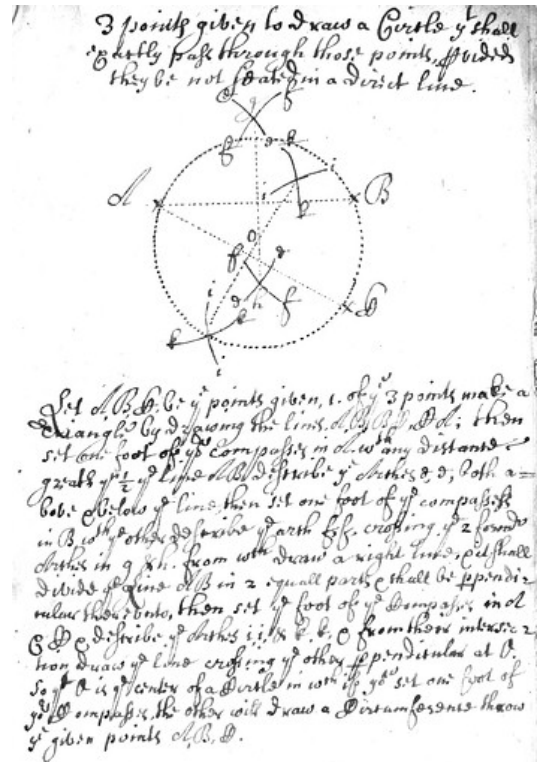 3 points given to draw a Circle yt shall
exactly pass through those points, pvided
they be not seated in a direct line.
c g f
f d k
A i B
k
o
f d
d h f D
i k
k
i
Let A B D, be ye points given, 1. of ye 3 points make a
Triangle by drawing the lines A B, B D, D A; then
set one foot of ye compasses in A wth any distance
greatr yn ½ ye line AB describe ye Arches d, d; both a=
bove & below ye line, then set one foot of ye compasses
in B wth ye other describe ye arch f, f. crossing ye 2 formr
Arches in g & h. from wch draw a right line, & it shall
divide ye Line AB in 2 equall parts & shall be ppendi=
cular thereunto, then set ye foot of ye Compasses in A
& D & describe ye Arches i, i, & k, k, & from their intersec=
tion draw ye line crossing ye other ppendicular at O
so yt O is ye center of a Circle in wch if you set one foot of
yr Compasses the other will draw a Circumference throw
ye given points A, B, D.